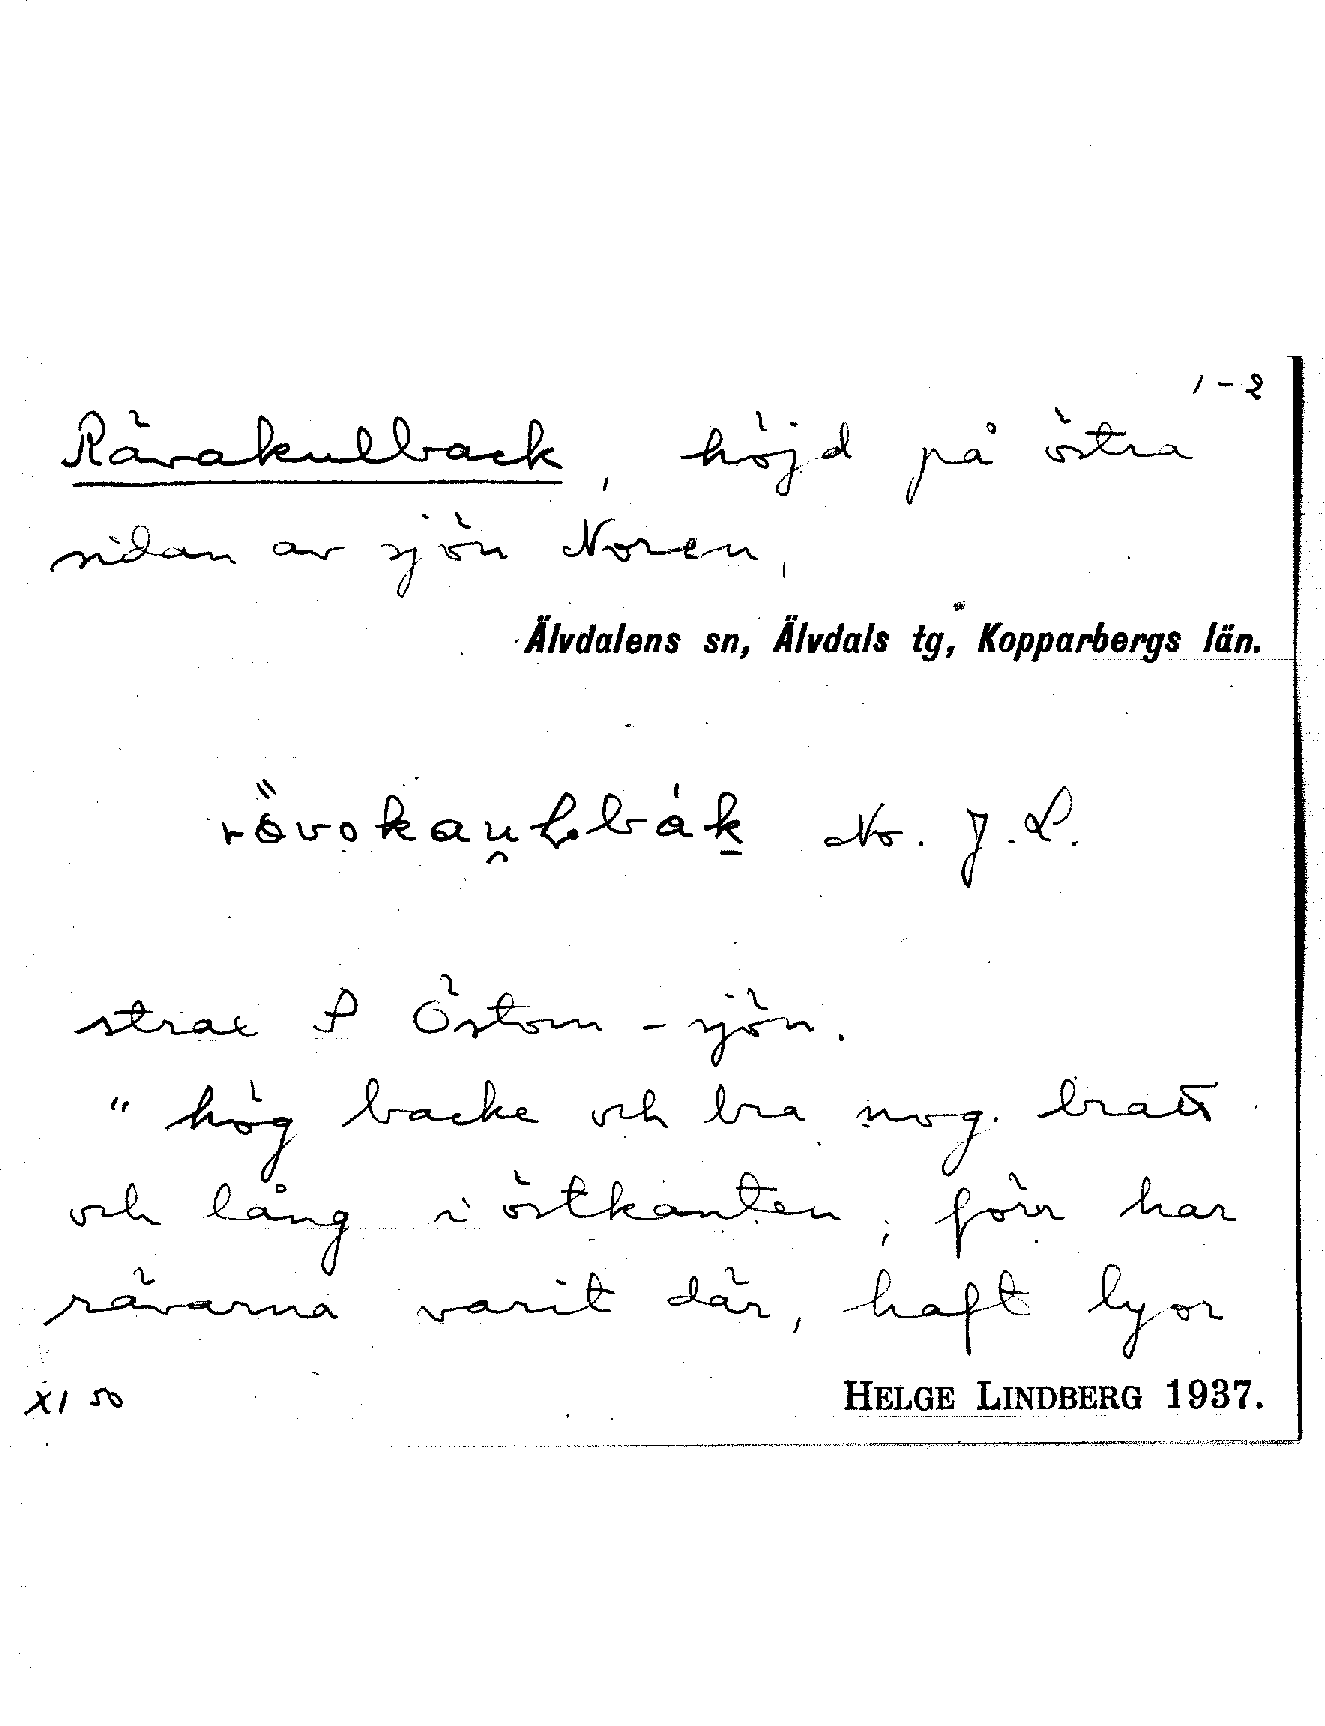 1-2
Rävakulback, höjd på östra
sidan av sjön Noren,
Älvdalens sn, Älvdals tg, Kopparbergs län.
No. J. L.
strax S Östom-sjön.
"hög backe och bra nog bratt
och lång i östkanten, förr har
rävarna varit där, haft lyor
XI 50
HELGE LINDBERG 1937.